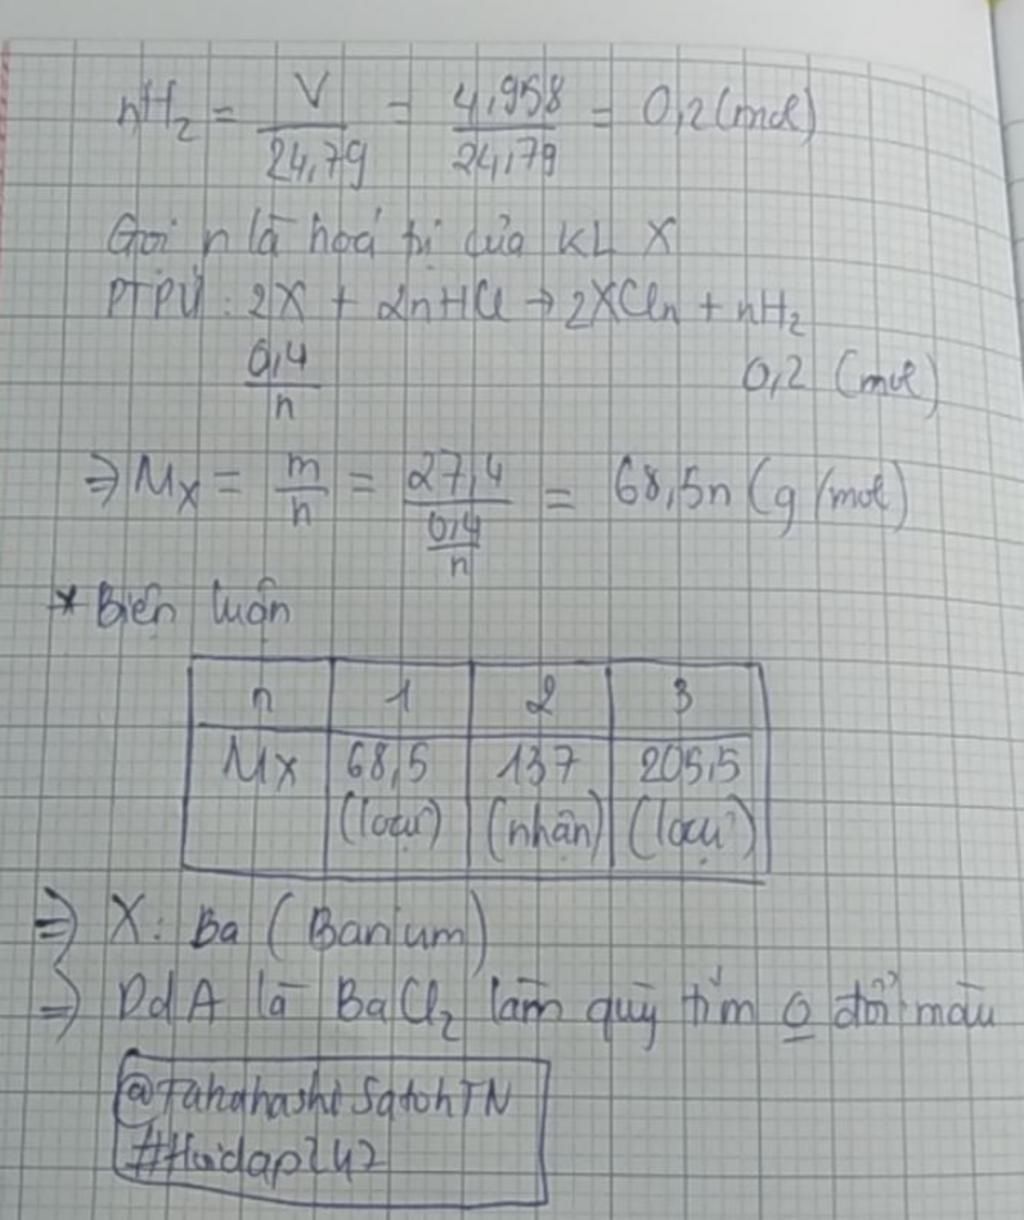 nH₂ = V/24,79 = 4,958/24,79 = 0,2 (mol)
Gọi n là hoá trị của KL X
PTPƯ: 2X + 2nHCl → 2XCln + nH₂
0,4/n 0,2 (mol)
⇒ Mx = m/n = 27,4/(0,4/n) = 68,5n (g/mol)
* Biện luận
n 1 2 3
Mx 68,5 137 205,5
(loại) (nhận) (loại)
⇒ X: Ba (Barium)
⇒ Dd A là BaCl₂ làm quỳ tím o đổi màu
@TakahashiSatohTN
#Hoidap247